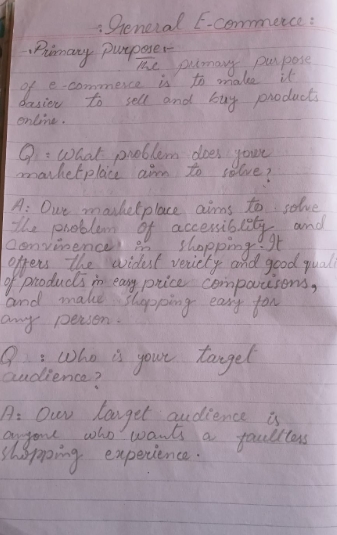 : General E-commerce :
- Primary Purpose :-
The primary purpose
of e-commerce is to make it
easier to sell and buy products
online.
Q : What problem does your
marketplace aim to solve?
A : Our marketplace aims to solve
the problem of accessibility and
convinence in shopping. It
offers the widest veriety and good quali
of products in easy price comparisons,
and make shopping easy for
any person.
Q : Who is your target
audience?
A : Our target audience is
anyone who wants a faultless
shopping experience.